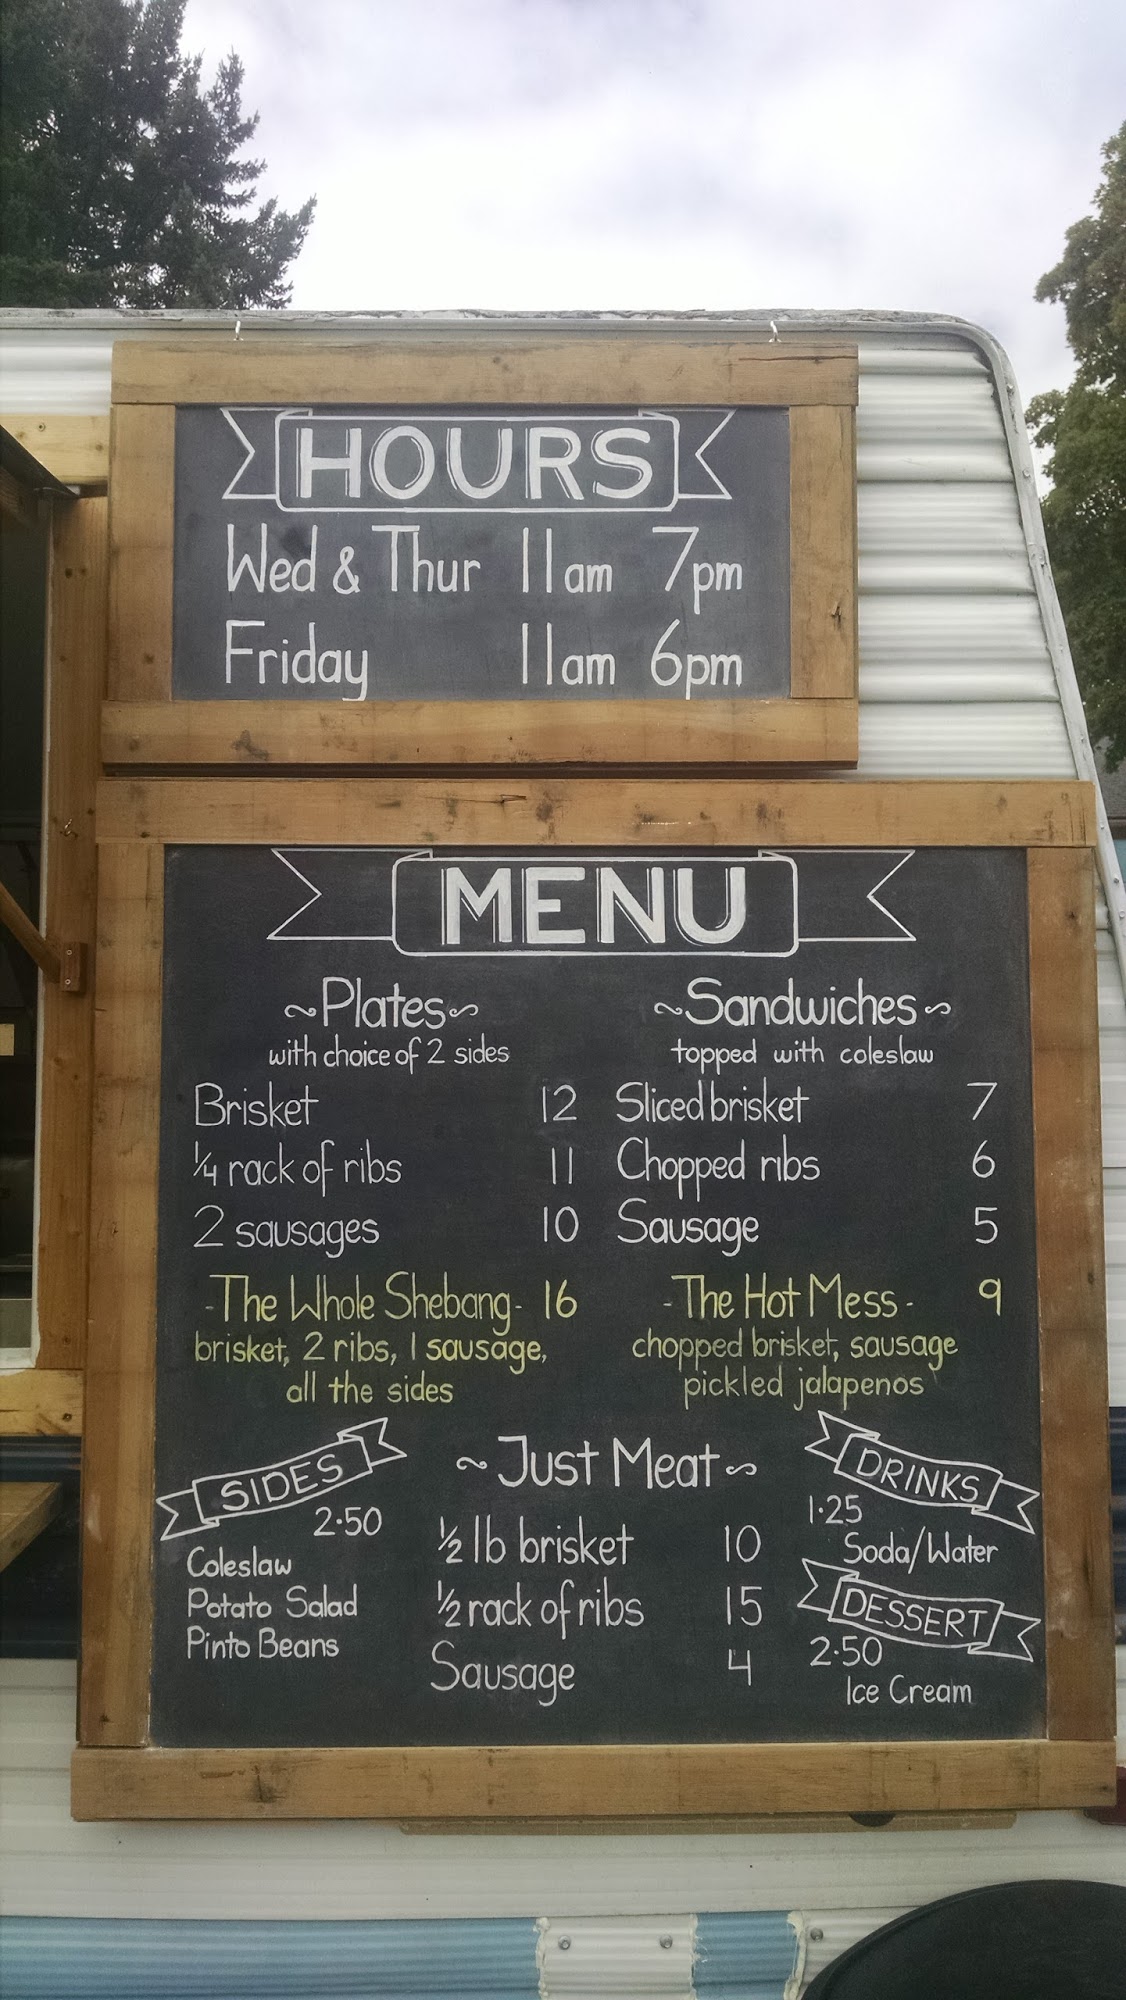 HOURS
Wed & Thur 11am 7pm
Friday 11am 6pm
MENU
~Plates~
with choice of 2 sides
Brisket 12
1/4 rack of ribs 11
2 sausages 10
-The Whole Shebang- 16
brisket, 2 ribs, 1 sausage,
all the sides
~Sandwiches~
topped with coleslaw
Sliced brisket 7
Chopped ribs 6
Sausage 5
-The Hot Mess- 9
chopped brisket, sausage
pickled jalapenos
SIDES
2.50
Coleslaw
Potato Salad
Pinto Beans
~Just Meat~
1/2 lb brisket 10
1/2 rack of ribs 15
Sausage 4
DRINKS
1.25
Soda/Water
DESSERT
2.50
Ice Cream